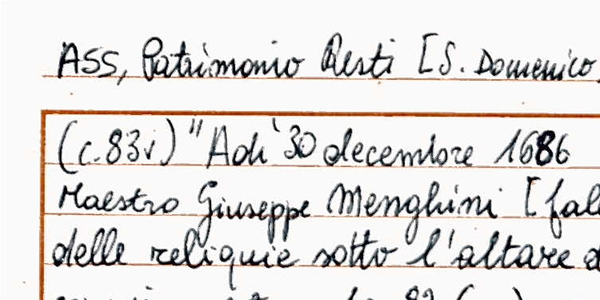 ASS, Patrimonio Resti [S. Domenico,
(c. 83v) "Adi' 30 decembre 1686
Maestro Giuseppe Menghini [fal
delle reliquie sotto l'altare d